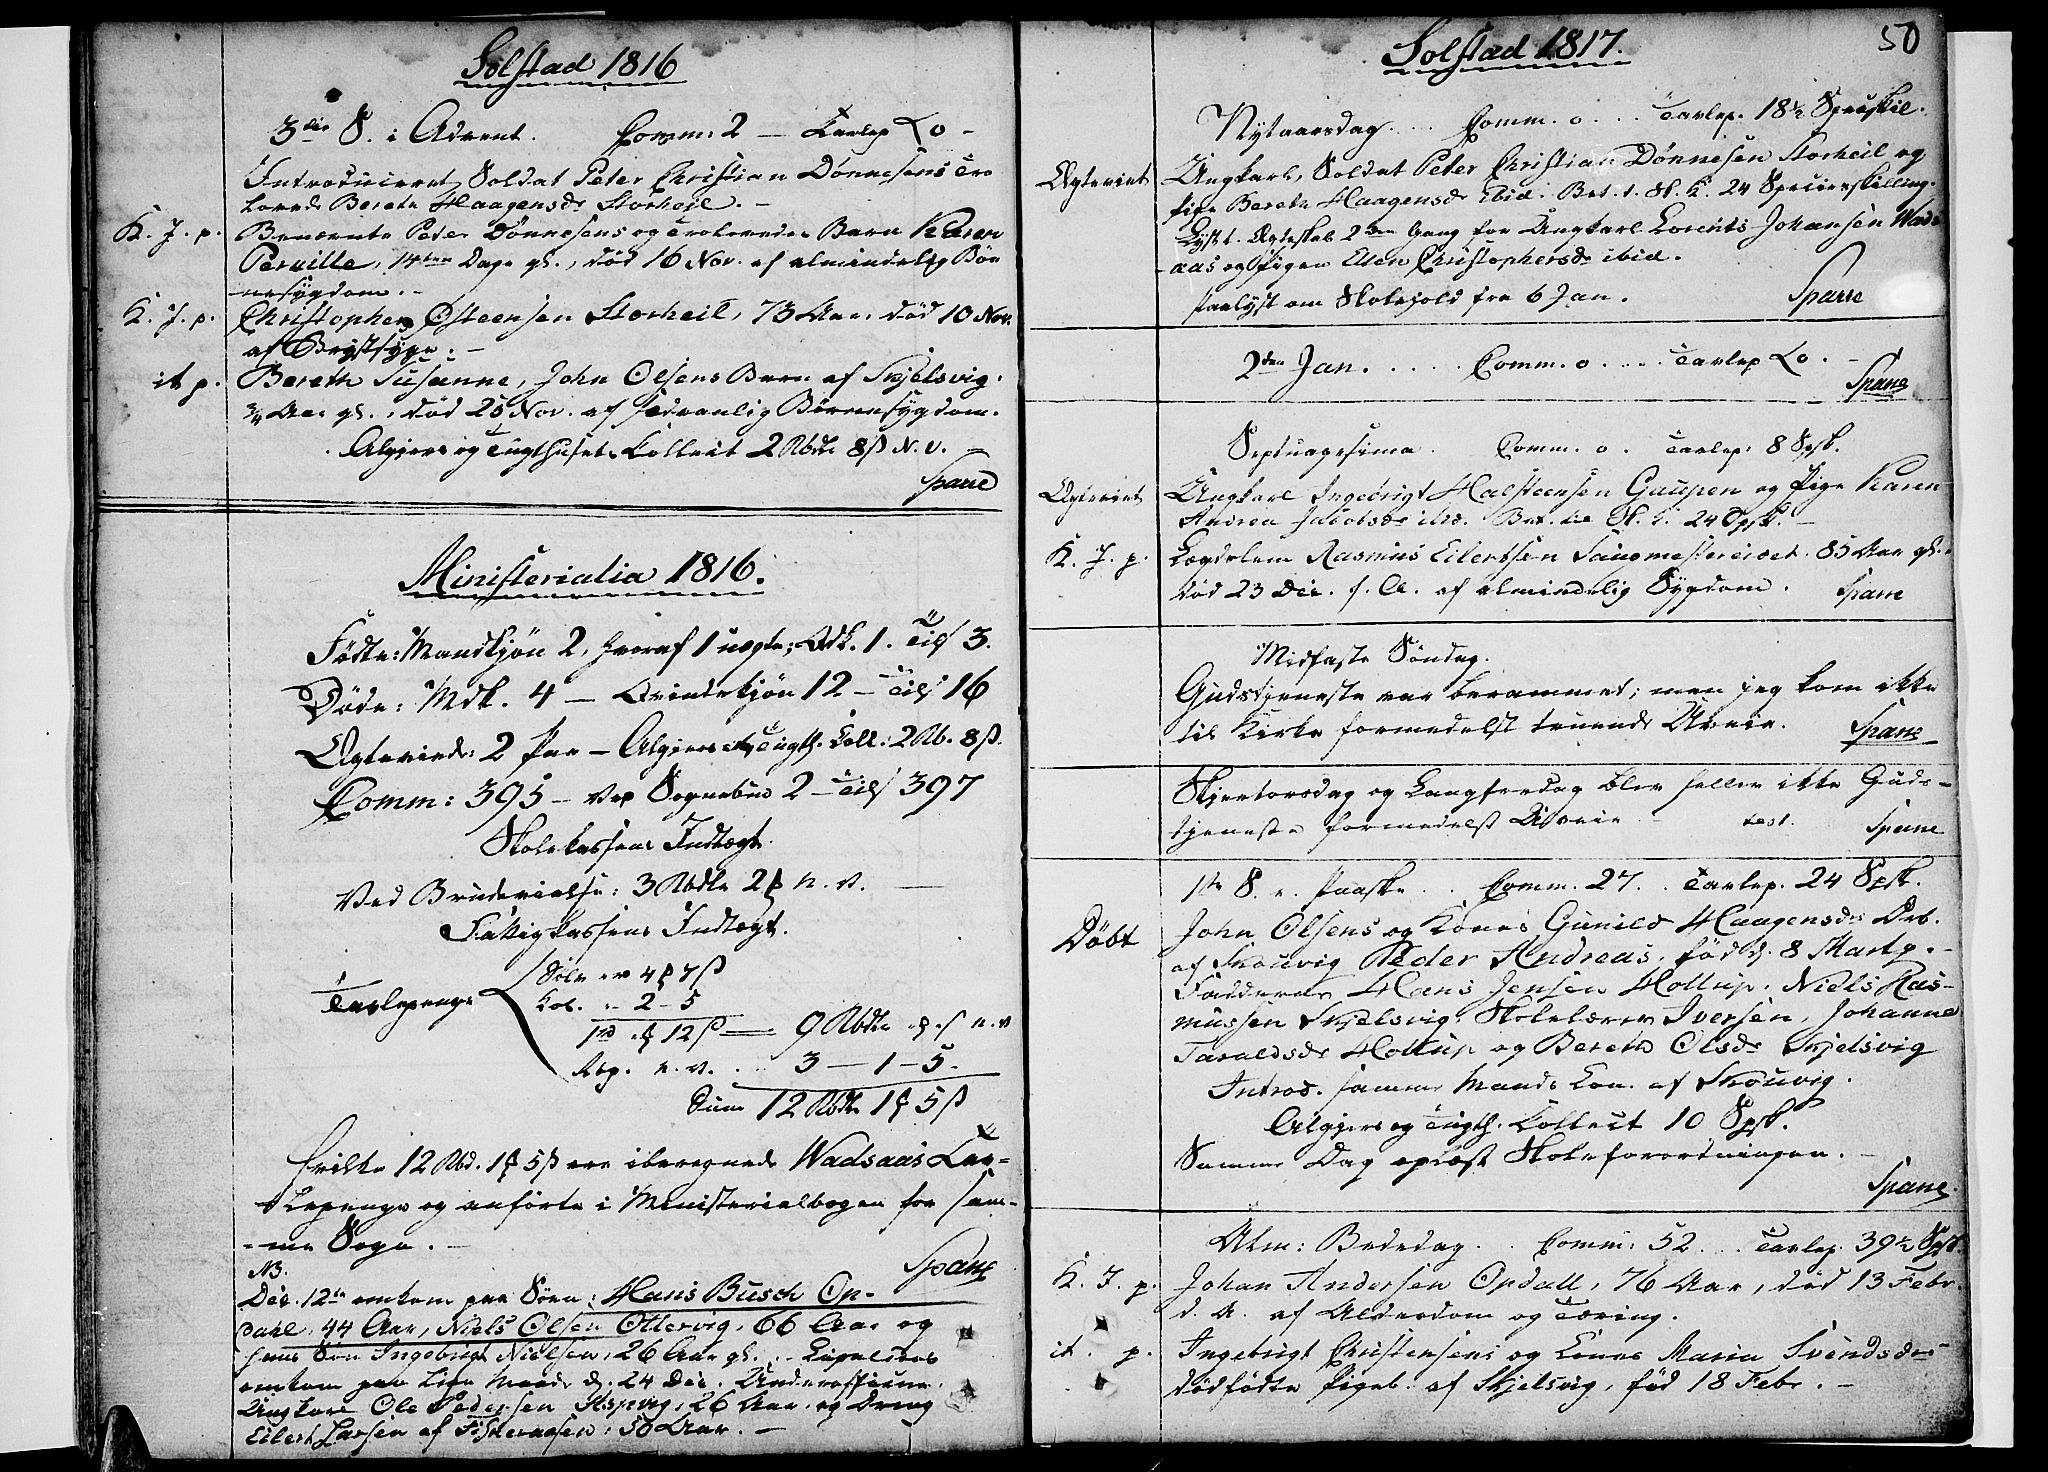 Solstad 1816
3die S. i Advent. Comm: 2 — Tavlep ʟo -
Introduceret Soldat Peter Christian Dønnesens Tro
lovede Bereth Haagensdr Storheil. -
K. J. p. Benævnte Peter Dønnesens og Trolovedes Barn Karen
Pernille, 14ten Dage gl., død 16 Nov. af almindelig Bør
nesygdom. -
K. J. p. Christopher Østeensen Storheil, 73 Aar, død 10 Nov.
af Brystsyge. -
it p. Bereth Susanne, John Olsens Barn af Skjelsvig
3/4 Aar gl., død 25 Nov. af sædvanlig Børnesygdom.
Algiers og Tugthusets Collect 2 Rbdlr 8 ß N. V. -
Sparre
Ministerialia 1816.
Fødte: Mandkjøn 2, hvoraf 1 uægte; Qdk. 1. Tils 3.
Døde: Mdk. 4 — Qvindekjøn 12 — Tils 16
Ægteviede: 2 Par — Algiers og Tugth. Coll: 2 Rb. 8 ß.
Comm: 395 — ved Sognebud 2 — Tils 397
Skolekassens Indtægt.
Ved Brudevielse: 3 Rbdlr 2 ꝑ n. v. —
Fattigkassens Indtægt.
Tavlepenge
Sølv 4 ꝑ 7 ß
Kob. .. 2 - 5
12 ß — 9 Rbdlr n. v
Rep. n. v. . . 3 — 1 — 5.
Sum 12 Rbdlr 1 ꝑ 5 ß
hvilke 12 Rbd. 1 ꝑ 5 ß ere iberegnede Wadsaas Tav-
lepenge og anførte i Ministerialbogen for sam-
-me Sogn. -
Sparre
NB.
Dec. 12te omkom paa Søen: Hans Busch Op-
dahl, 44 Aar, Niels Olsen Ottervig, 66 Aar og
hans Søn Ingebrigt Nielsen, 26 Aar gl.
omkom paa d. 24 Dec. Underofficeer
Ungkarl Ole Pedersen Aspvig, 26 Aar, og Dreng
Eilert Larsen af 50 Aar. -
Solstad 1817. 50
Nytaarsdag . . . Comm. o . . . Tavlep. 18 1/2 Speciskil.
Ægteviet Ungkarl, Soldat Peter Christian Dønnesen Storheil og
Pige Bereth Haagensdr ibid. Bet. t. Sk. K. 24 Specieskilling.
Lyst t. Ægteskab 2den Gang for Ungkarl Lorents Johansen Wads
-aas og Pigen Elen Christophersdr ibid.
Paalyst om Skolehold fra 6 Jan. Sparre
2den Jan. . . . . Comm. o . . . . Tavlep ʟo. -
Sparre
Septuagesima Comm. o. Tavlep: 8 Spsk.
Ægteviet Ungkarl Ingebrigt Halsteensen Gaupen og Pige Karen
Andrea Jacobsdr ibid. Bet. til Sk. K. 24 Spsk. -
K. J. p. Lægdslem Rasmus Eilertsen Saugmestereidet. 85 Aar gl.
død 23 Dec. f. A. af almindelig Sygdom. Sparre
Midfaste Søndag.
Gudstjeneste var berammet; men jeg kom ikke
til Kirke formedelst truende Uveir. Sparre
Skjertorsdag og Langfredag blev heller ikke Guds-
tjeneste formedelst Uveir. - test. Sparre
1ste S. e. Paaske . . Comm. 27. . Tavlep. 24 Spsk.
Døbt John Olsens og Kones Gunild Haagensdr Drb.
af Skouvig Peder Andreas, fød d. 8 Marty. -
Faddere Hans Jensen Holtup, Niels Ras-
mussen Skjelsvig, Skolelærer Iversen, Johanne
Taraldsdr Holtup og Bereth Olsdr Skjelsvig
Introd. samme Mands Kone af Skouvig.
Algiers og Tugth. Collect 10 Spsk.
Samme Dag oplæst Skoleforordningen. -
Sparre
Alm: Bededag . . Comm: 52 . . Tavlep. 39 1/2 Spsk.
K. J. p. Johan Andersen Opdall, 76 Aar, død 13 Febr.
d. A. af Alderdom og Tæring.
it. p. Ingebrigt Christensens og Kones Maria Svendsdrs
dødfødte Pigeb. af Skjelsvig, fød 18 Febr. -